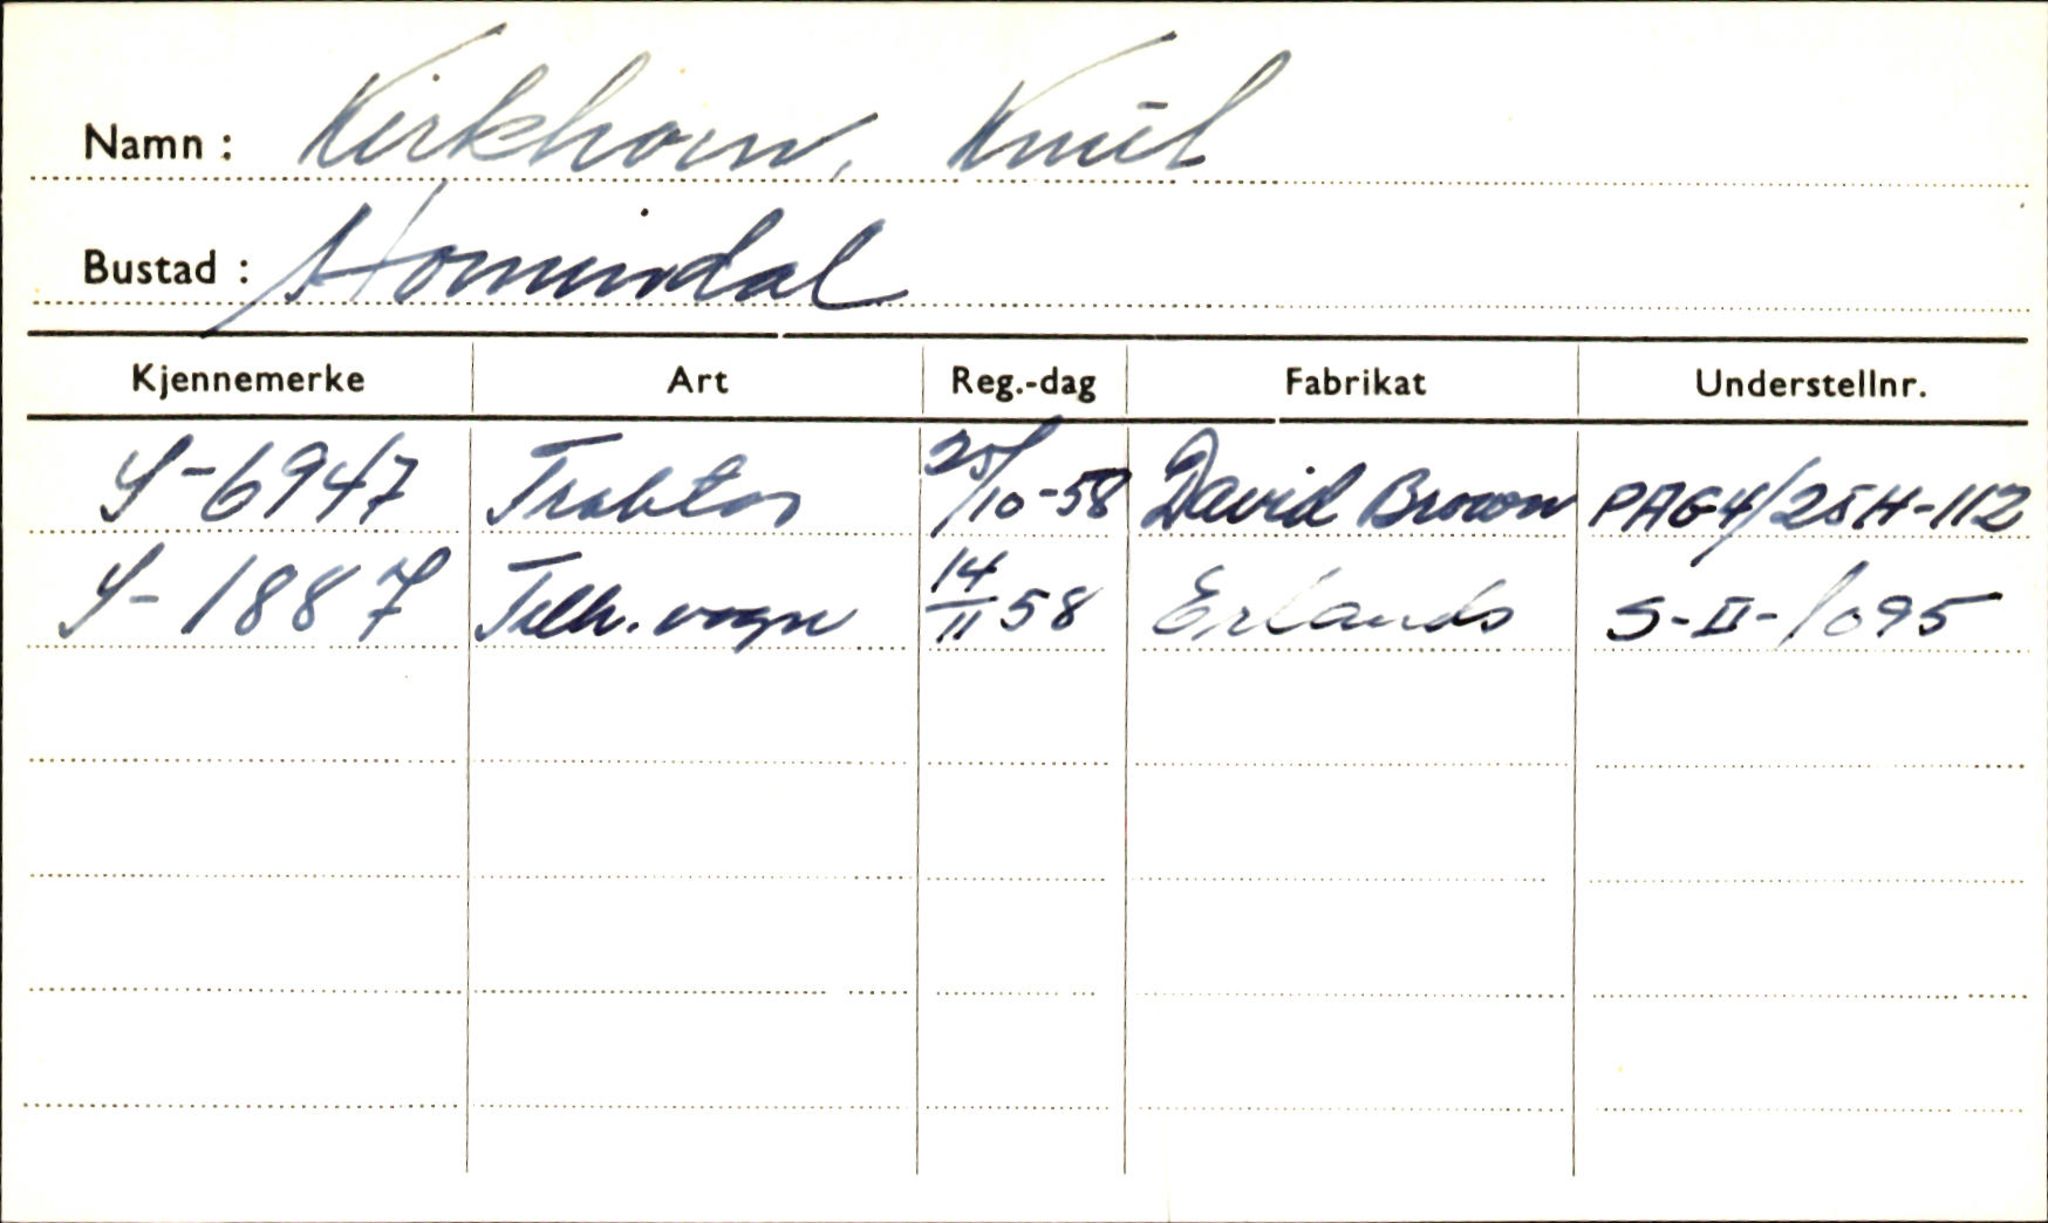 Namn : Kirkhorn, Knut
Bustad : Hornindal
Kjennemerke Art Reg.-dag Fabrikat Understellnr.
S-6947 Traktor 25/10-58 David Brown PAG4/25H-112
S-1887 Tilh. vogn 14/11 58 Erlands S-II-1095